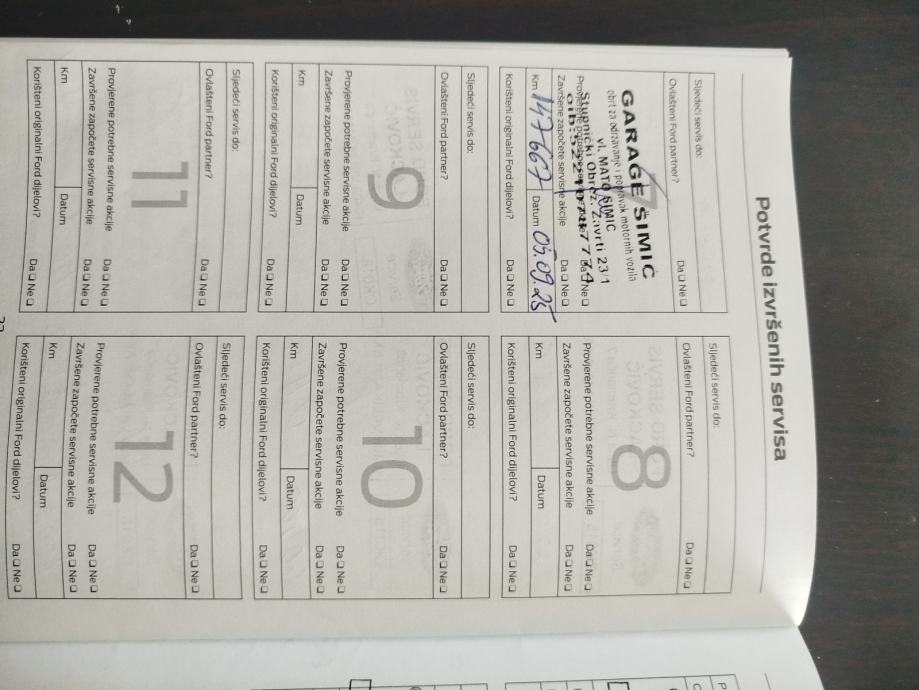 Potvrde izvršenih servisa
Sljedeći servis do:
Ovlašteni Ford partner? Da Ne
7
GARAGE ŠIMIĆ
obrt za održavanje i popravak motornih vozila
vl. MATO ŠIMIĆ
Stupnički Obrež, Zavrti 23/1
Provjerene potrebne servisne akcije Da Ne
Završene započete servisne akcije Da Ne
Km 147667 Datum 05.09.25
Korišteni originalni Ford dijelovi? Da Ne
Sljedeći servis do:
Ovlašteni Ford partner? Da Ne
8
Provjerene potrebne servisne akcije Da Ne
Završene započete servisne akcije Da Ne
Km Datum
Korišteni originalni Ford dijelovi? Da Ne
Sljedeći servis do:
Ovlašteni Ford partner? Da Ne
9
Provjerene potrebne servisne akcije Da Ne
Završene započete servisne akcije Da Ne
Km Datum
Korišteni originalni Ford dijelovi? Da Ne
Sljedeći servis do:
Ovlašteni Ford partner? Da Ne
10
Provjerene potrebne servisne akcije Da Ne
Završene započete servisne akcije Da Ne
Km Datum
Korišteni originalni Ford dijelovi? Da Ne
Sljedeći servis do:
Ovlašteni Ford partner? Da Ne
11
Provjerene potrebne servisne akcije Da Ne
Završene započete servisne akcije Da Ne
Km Datum
Korišteni originalni Ford dijelovi? Da Ne
Sljedeći servis do:
Ovlašteni Ford partner? Da Ne
12
Provjerene potrebne servisne akcije Da Ne
Završene započete servisne akcije Da Ne
Km Datum
Korišteni originalni Ford dijelovi? Da Ne